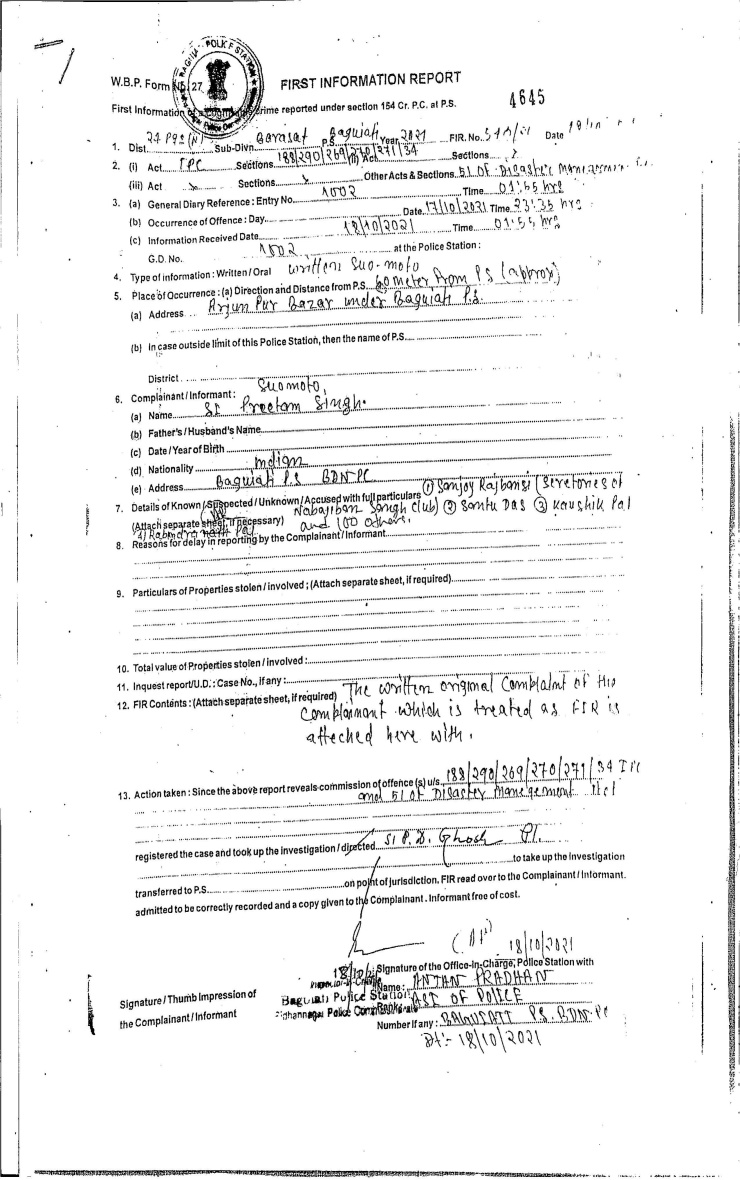 BAGUIATI POLICE STATION
W.B.P. Form No. 27
FIRST INFORMATION REPORT
4645
First Information of a Cognizable Crime reported under section 154 Cr. P.C. at P.S.
1. Dist. 24 PGS (N) Sub-Divn. Barasat P.S. Baguiati Year 2021 FIR. No. Date 18/10
2. (i) Act IPC Sections 188/290/269/270/271/34 (ii) Act Sections X
(iii) Act X Sections X Other Acts & Sections. 51 OF Disaster Management
3. (a) General Diary Reference : Entry No. 1002 Time 01:55 hrs
(b) Occurrence of Offence : Day Date. 17/10/2021 Time. 23:35 hrs
(c) Information Received Date 18/10/2021 Time. 01:55 hrs
G.D. No. 1002 at the Police Station :
4. Type of information : Written / Oral written Suo-moto
5. Place of Occurrence : (a) Direction and Distance from P.S. meter from PS (approx)
(a) Address Arjun Pur Bazar under Baguiati P.S.
(b) in case outside limit of this Police Station, then the name of P.S.
District
6. Complainant / Informant : Suo moto,
(a) Name SI Preetam Singh.
(b) Father's / Husband's Name
(c) Date / Year of Birth
(d) Nationality Indian
(e) Address Baguiati P.S BDNPC
7. Details of Known / Suspected / Unknown / Accused with full particulars ① Sanjoy Rajbansi (Seretories of
(Attach separate sheet, if necessary) Nabajiban Sangh Club) ② Santu Das ③ Kaushik Pal
4) Rabindra nath Pal and 100 others.
8. Reasons for delay in reporting by the Complainant / Informant
9. Particulars of Properties stolen / involved ; (Attach separate sheet, if required)
10. Total value of Properties stolen / involved :
11. Inquest report/U.D. : Case No., if any :
12. FIR Contents : (Attach separate sheet, if required) The written original Complaint of the
Complainant which is treated as FIR is
atteched here with.
13. Action taken : Since the above report reveals commission of offence (s) u/s. 188/290/269/270/271/34 IPC
and 51 of Disaster Management Act
registered the case and took up the investigation / directed SI P.D. Ghosh
to take up the investigation
transferred to P.S. on point of jurisdiction. FIR read over to the Complainant / Informant.
admitted to be correctly recorded and a copy given to the Complainant . Informant free of cost.
18/10/2021
Signature of the Office-in-Charge, Police Station with
Name :
Signature / Thumb Impression of
Baguiati Police Station
Rank : OF POLICE
the Complainant / Informant
Bidhannagar Police Commissionerate
Number if any : BAGUIATI PS. BDN-PC
Dt:- 18/10/2021